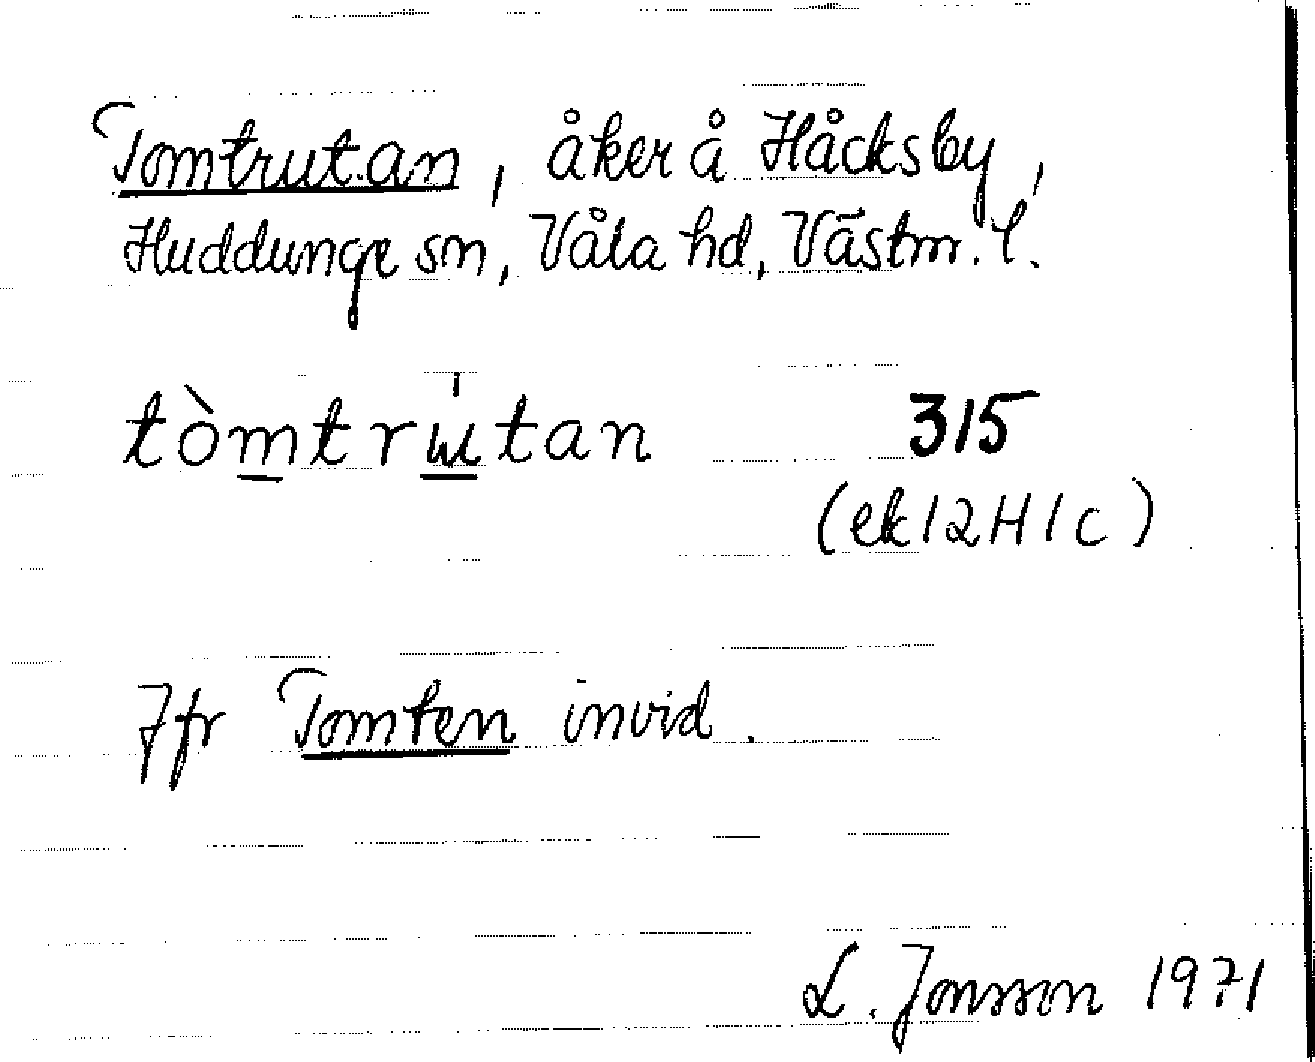 Tomtrutan, åker å Håcksby,
Huddunge sn, Våla hd, Västm. l.
tòmtrɯ̍tan 315
(ek 12H1c)
Jfr Tomten invid.
L. Jonsson 1971